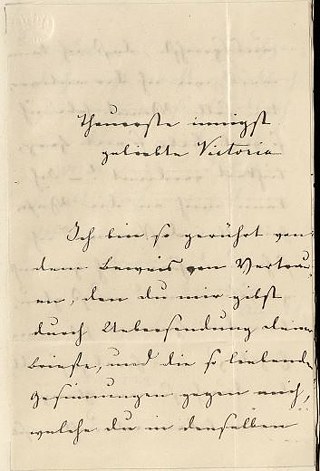 Theuerste innigst
geliebte Victoria
Ich bin so gerührt von
dem Beweis von Vertrau-
en, den du mir gibst
durch Uebersendung deiner
Briefe, und die so liebenden
Gesinnungen gegen mich,
welche du in denselben